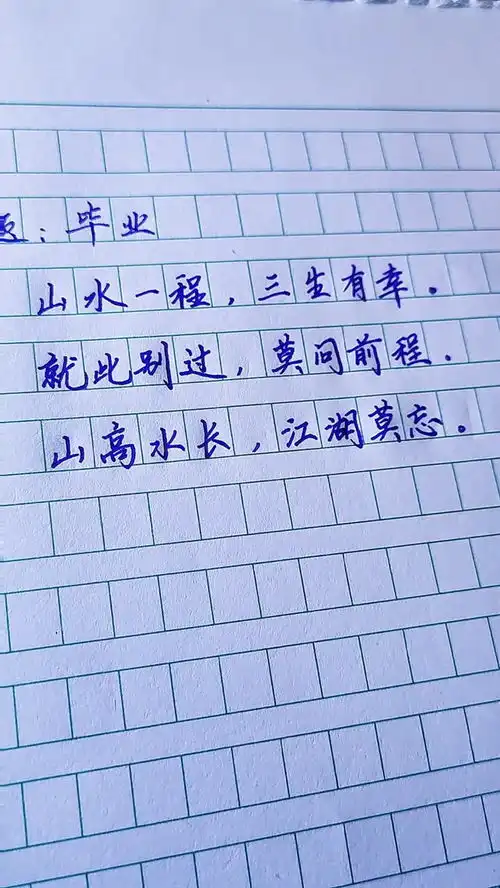 题：毕业
山水一程，三生有幸。
就此别过，莫问前程.
山高水长，江湖莫忘。